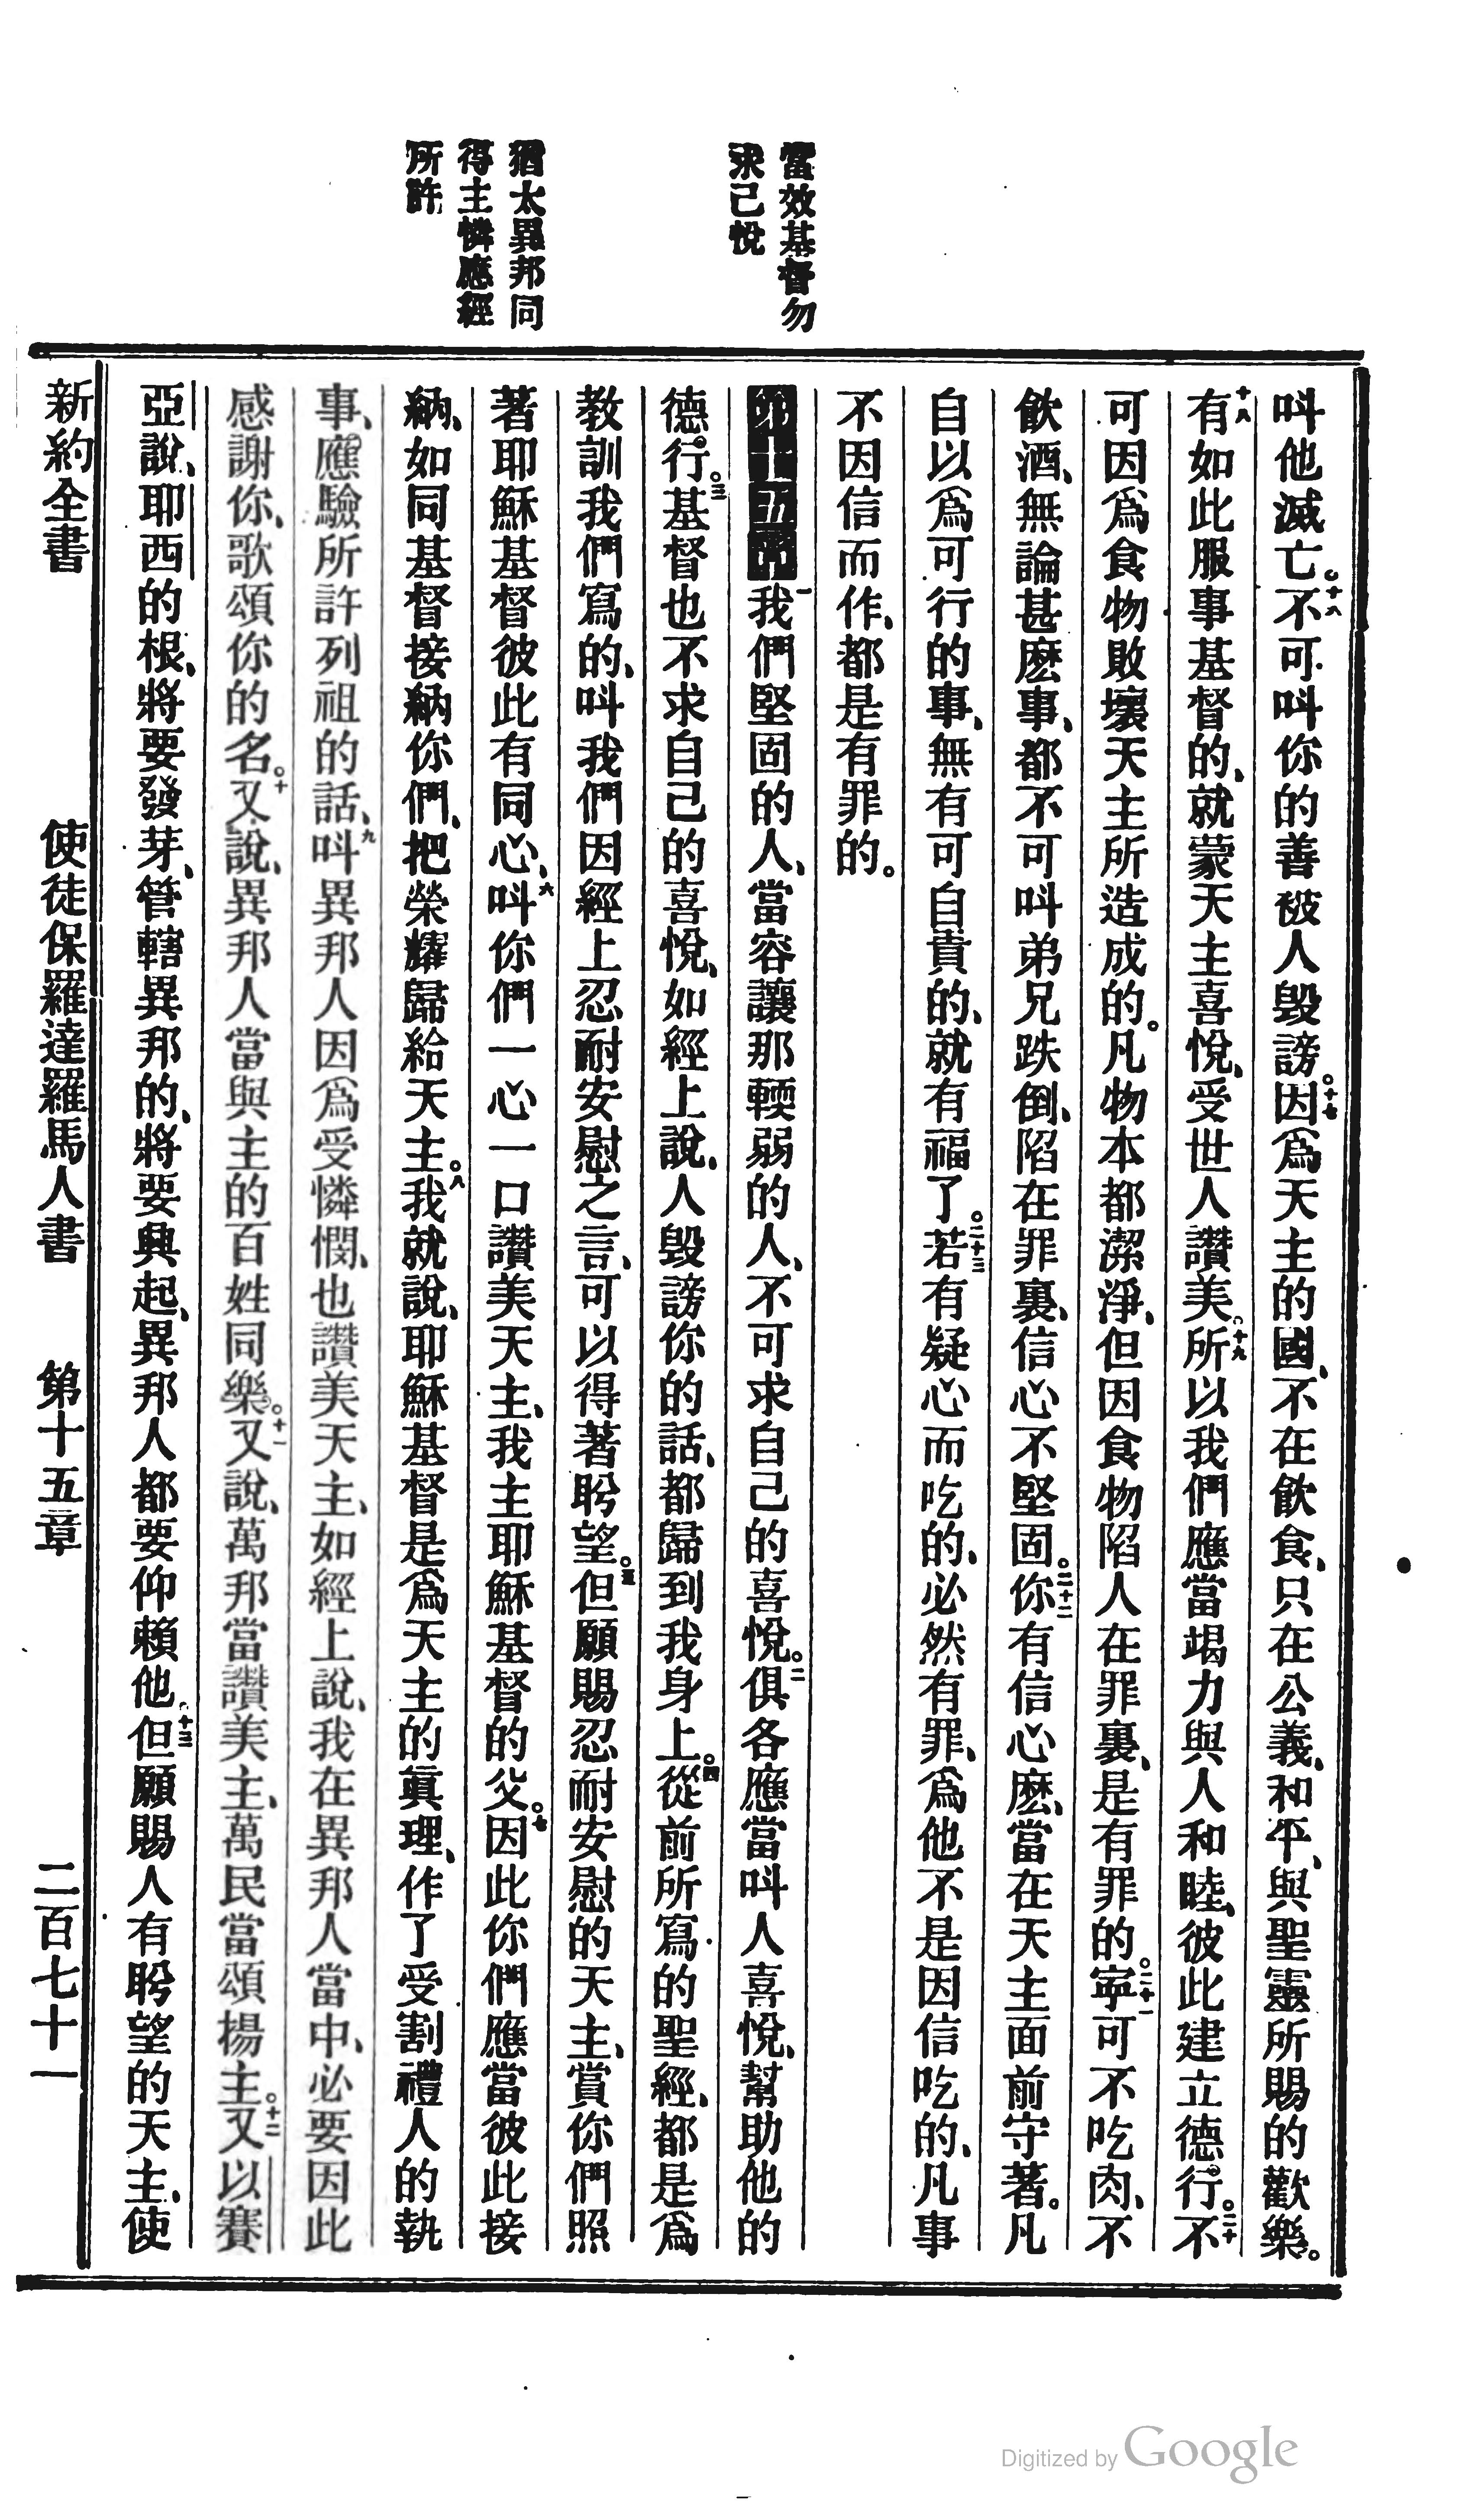 當效基督勿
求己悅
猶太異邦同
得主憐應經
所許
叫他滅亡。十六不可叫你的善被人毀謗。十七因爲天主的國、不在飲食、只在公義、和平、與聖靈所賜的歡樂。
十八有如此服事基督的、就蒙天主喜悅、受世人讚美。十九所以我們應當竭力與人和睦、彼此建立德行。二十不
可因爲食物敗壞天主所造成的。凡物本都潔淨、但因食物陷人在罪裏、是有罪的。二十一寧可不吃肉、不
飲酒、無論甚麽事、都不可叫弟兄跌倒、陷在罪裏、信心不堅固。二十二你有信心麽、當在天主面前守著。凡
自以爲可行的事、無有可自責的、就有福了。二十三若有疑心而吃的、必然有罪、爲他不是因信吃的、凡事
不因信而作、都是有罪的。
第十五章一我們堅固的人、當容讓那輭弱的人、不可求自己的喜悅。二俱各應當叫人喜悅、幫助他的
德行。三基督也不求自己的喜悅、如經上說、人毀謗你的話、都歸到我身上。四從前所寫的聖經、都是爲
教訓我們寫的、叫我們因經上忍耐安慰之言、可以得著盼望。五但願賜忍耐安慰的天主、賞你們照
著耶穌基督彼此有同心、六叫你們一心一口讚美天主、我主耶穌基督的父。七因此你們應當彼此接
納、如同基督接納你們、把榮耀歸給天主。八我就說、耶穌基督是爲天主的眞理、作了受割禮人的執
事、應驗所許列祖的話、九叫異邦人因爲受憐憫、也讚美天主、如經上說、我在異邦人當中、必要因此
感謝你、歌頌你的名。十又說、異邦人當與主的百姓同樂。十一又說、萬邦當讚美主、萬民當頌揚主。十二又以賽
亞說、耶西的根、將要發芽、管轄異邦的、將要興起、異邦人都要仰賴他。十三但願賜人有盼望的天主、使
新約全書 使徒保羅達羅馬人書 第十五章 二百七十一
Digitized by Google